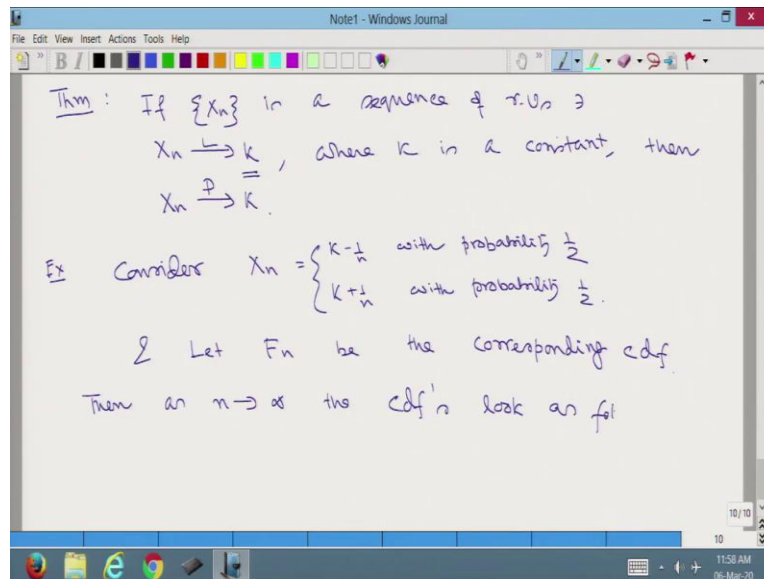 Note1 - Windows Journal
File Edit View Insert Actions Tools Help
B I
Thm : If {Xn} is a sequence of r.vs ∋
Xn —L→ K, where K is a constant, then
Xn —P→ K.
Ex Consider Xn = { K - 1/n with probability 1/2
K + 1/n with probability 1/2.
& Let Fn be the corresponding cdf.
Then as n → ∞ the cdf's look as fol
10/10
10
11:58 AM
06-Mar-20